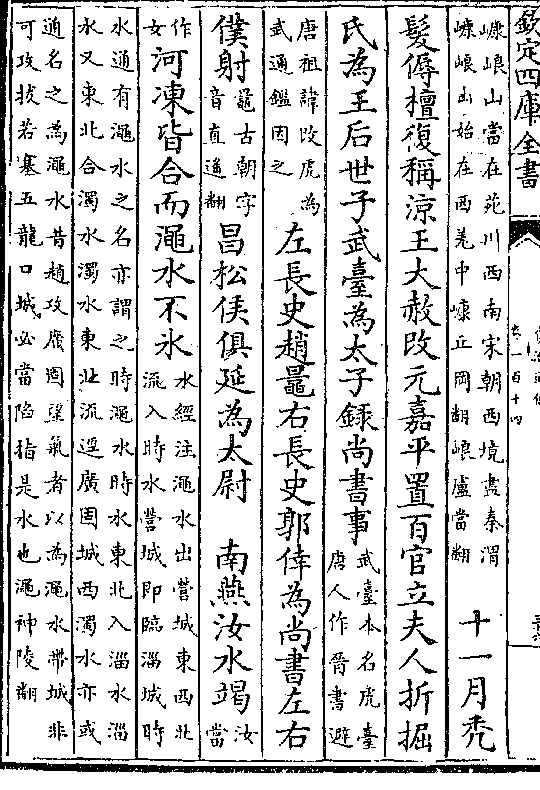 欽定四庫全書
卷一百十四
㠓㟍山當在苑川西南宋朝西境盡秦渭
㠓㟍山始在西羌中㠓丘岡翻㟍盧當翻
十一月禿
髮傉檀復稱涼王大赦改元嘉平置百官立夫人折掘
氏為王后世子武臺為太子錄尚書事
武臺本名虎臺
唐人作晉書避
唐祖諱改虎為
武通鑑因之
左長史趙鼂右長史郭倖為尚書左右
僕射
鼂古朝字
音直遙翻
昌松侯俱延為太尉　南燕汝水竭
汝當
作
女
河凍皆合而澠水不冰
水經注澠水出營城東西北
流入時水營城即臨淄城時
水通有澠水之名亦謂之時澠水時水東北入淄水淄
水又東北合濁水濁水東北流逕廣固城西濁水亦或
通名之為澠水昔趙攻廣固望氣者以為澠水帶城非
可攻拔若塞五龍口城必當陷指是水也澠神陵翻